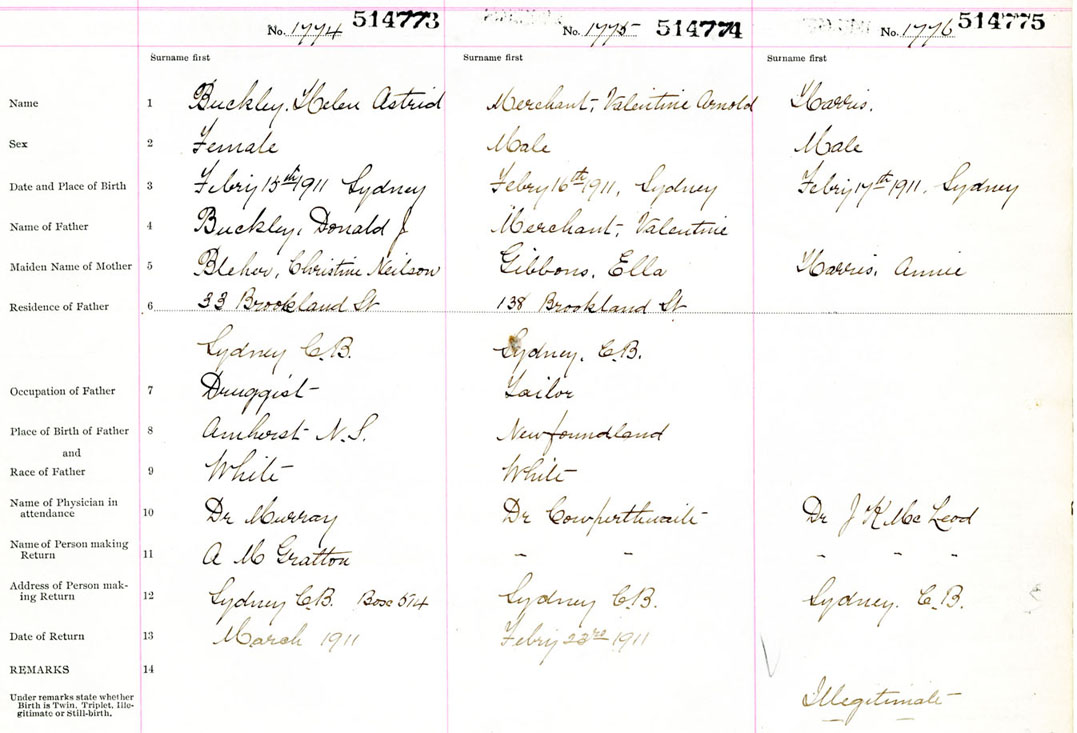 No. 1774 514773 No. 1775 514774 No. 1776 514775
Surname first Surname first Surname first
Name 1 Buckley, Helen Astrid Merchant, Valentine Arnold Harris.
Sex 2 Female Male Male
Date and Place of Birth 3 Febry 15th 1911 Sydney Febry 16th 1911, Sydney Febry 17th 1911. Sydney
Name of Father 4 Buckley, Donald J Merchant, Valentine
Maiden Name of Mother 5 Bleher, Christine Neilson Gibbons, Ella Harris, Annie
Residence of Father 6 33 Brookland St 138 Brookland St
Sydney C.B. Sydney, C.B.
Occupation of Father 7 Druggist Tailor
Place of Birth of Father 8 Amherst N.S. Newfoundland
and
Race of Father 9 White White
Name of Physician in
attendance 10 Dr Murray Dr Cowperthwaite Dr J K McLeod
Name of Person making
Return 11 A M Gratton " " " " "
Address of Person mak-
ing Return 12 Sydney C.B. Box 574 Sydney C.B. Sydney. C.B.
Date of Return 13 March 1911 Febry 23rd 1911
REMARKS 14
Under remarks state whether
Birth is Twin, Triplet, Ille-
gitimate or Still-birth.
Illegitimate